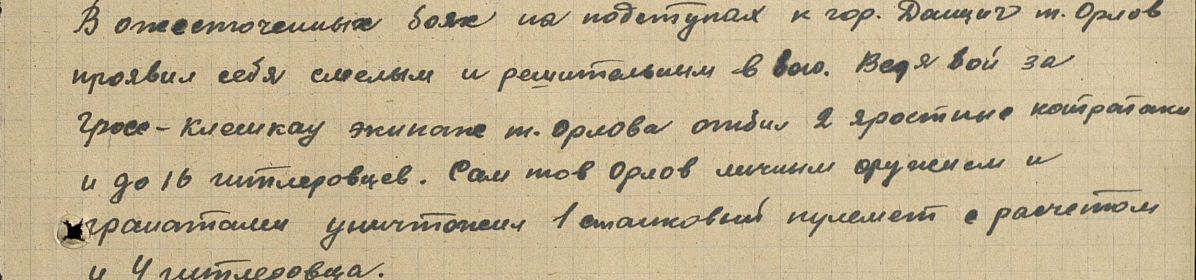 В ожесточенных боях на подступах к гор. Данциг т. Орлов
проявил себя смелым и решительным в бою. Ведя бой за
Гросс-Клешкау экипаж т. Орлова отбил 2 яростные контратаки
и до 16 гитлеровцев. Сам тов Орлов личным оружием и
гранатами уничтожил 1 станковый пулемет с расчетом
и 4 гитлеровца.